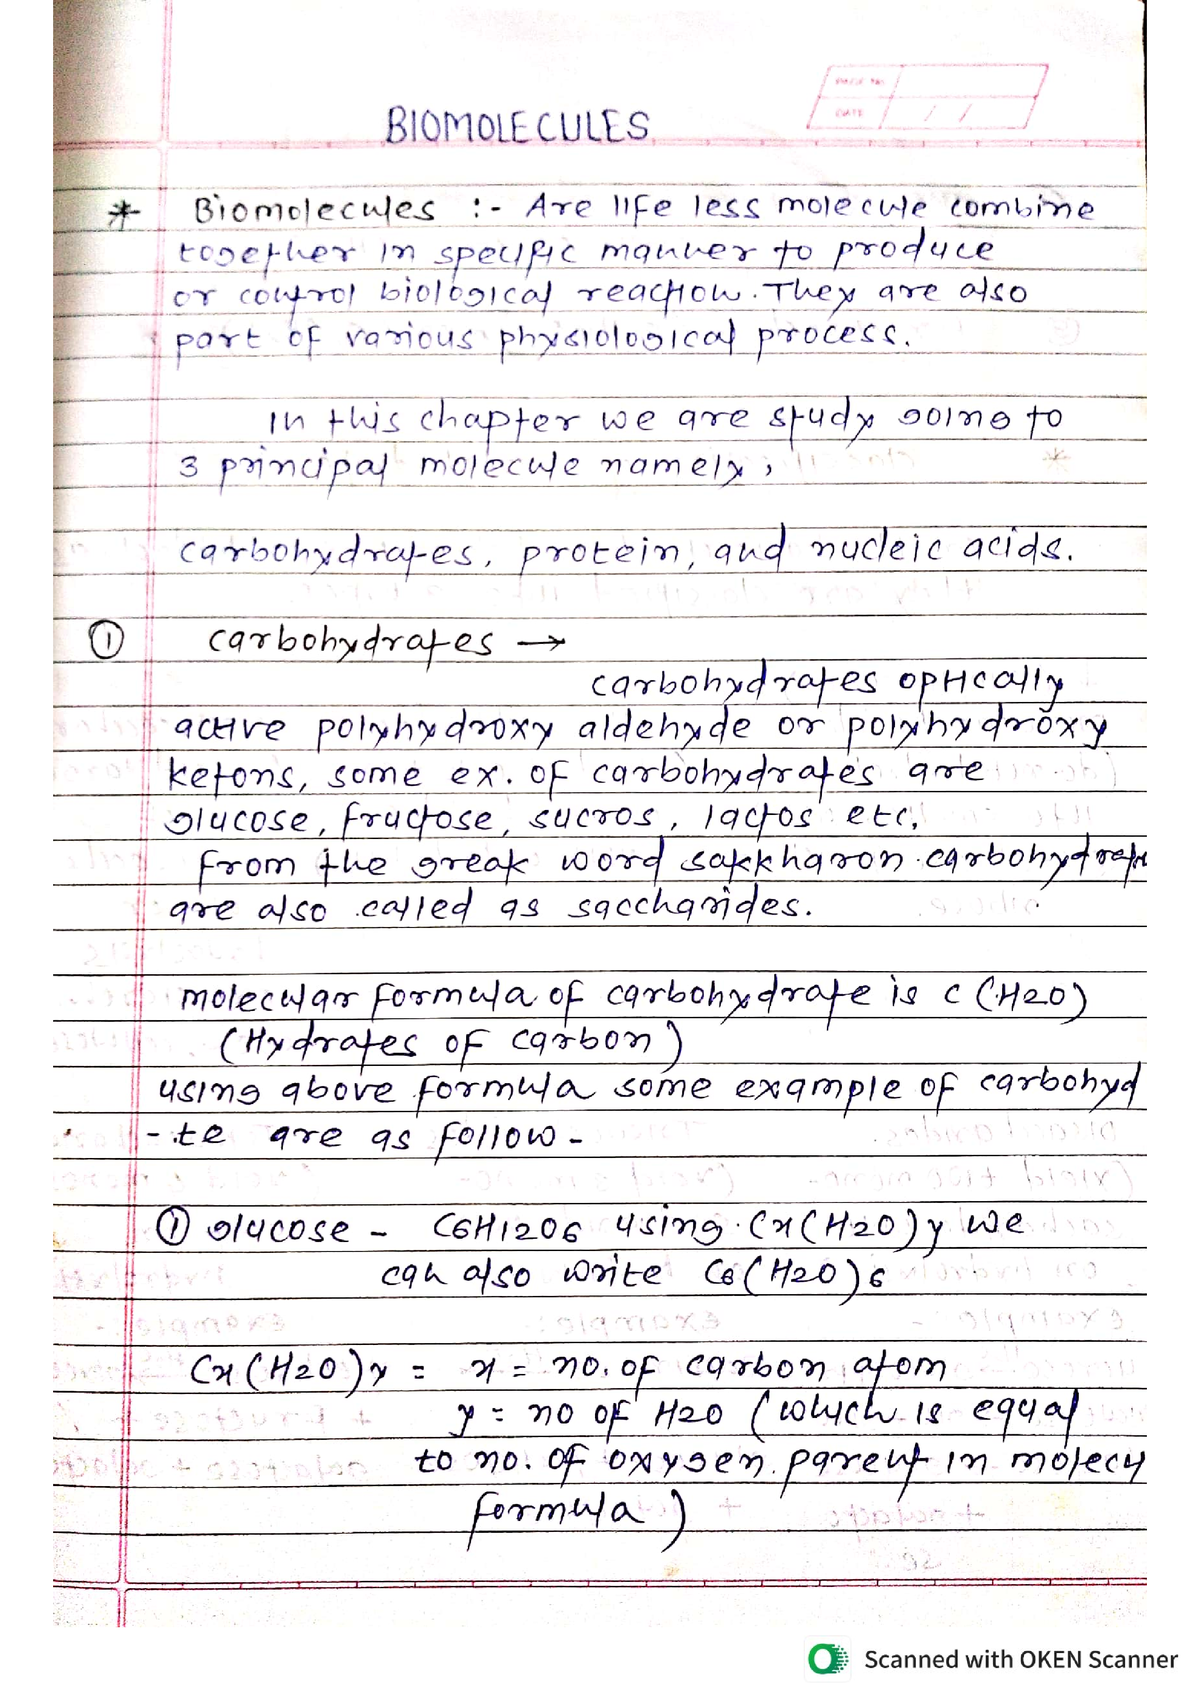 PAGE No.
DATE / /
BIOMOLECULES
* Biomolecules :- Are life less molecule combine
together in specific manner to produce
or control biological reaction. They are also
part of various physiological process.
In this chapter we are study going to
3 principal molecule namely,
carbohydrates, protein, and nucleic acids.
① carbohydrates →
carbohydrates optically
active polyhydroxy aldehyde or polyhydroxy
ketons, some ex. of carbohydrates are
glucose, fructose, sucros, lactos etc.
from the greak word sakkharon carbohydrate
are also called as saccharides.
molecular formula of carbohydrate is C (H2O)
(Hydrates of carbon)
using above formula some example of carbohyd
-te are as follow -
① glucose - C6H12O6 using Cx(H2O)y we
can also write C6(H2O)6
Cx(H2O)y = x = no. of carbon atom
y = no of H2O (which is equal
to no. of oxygen parent in molecu
formula)
Scanned with OKEN Scanner